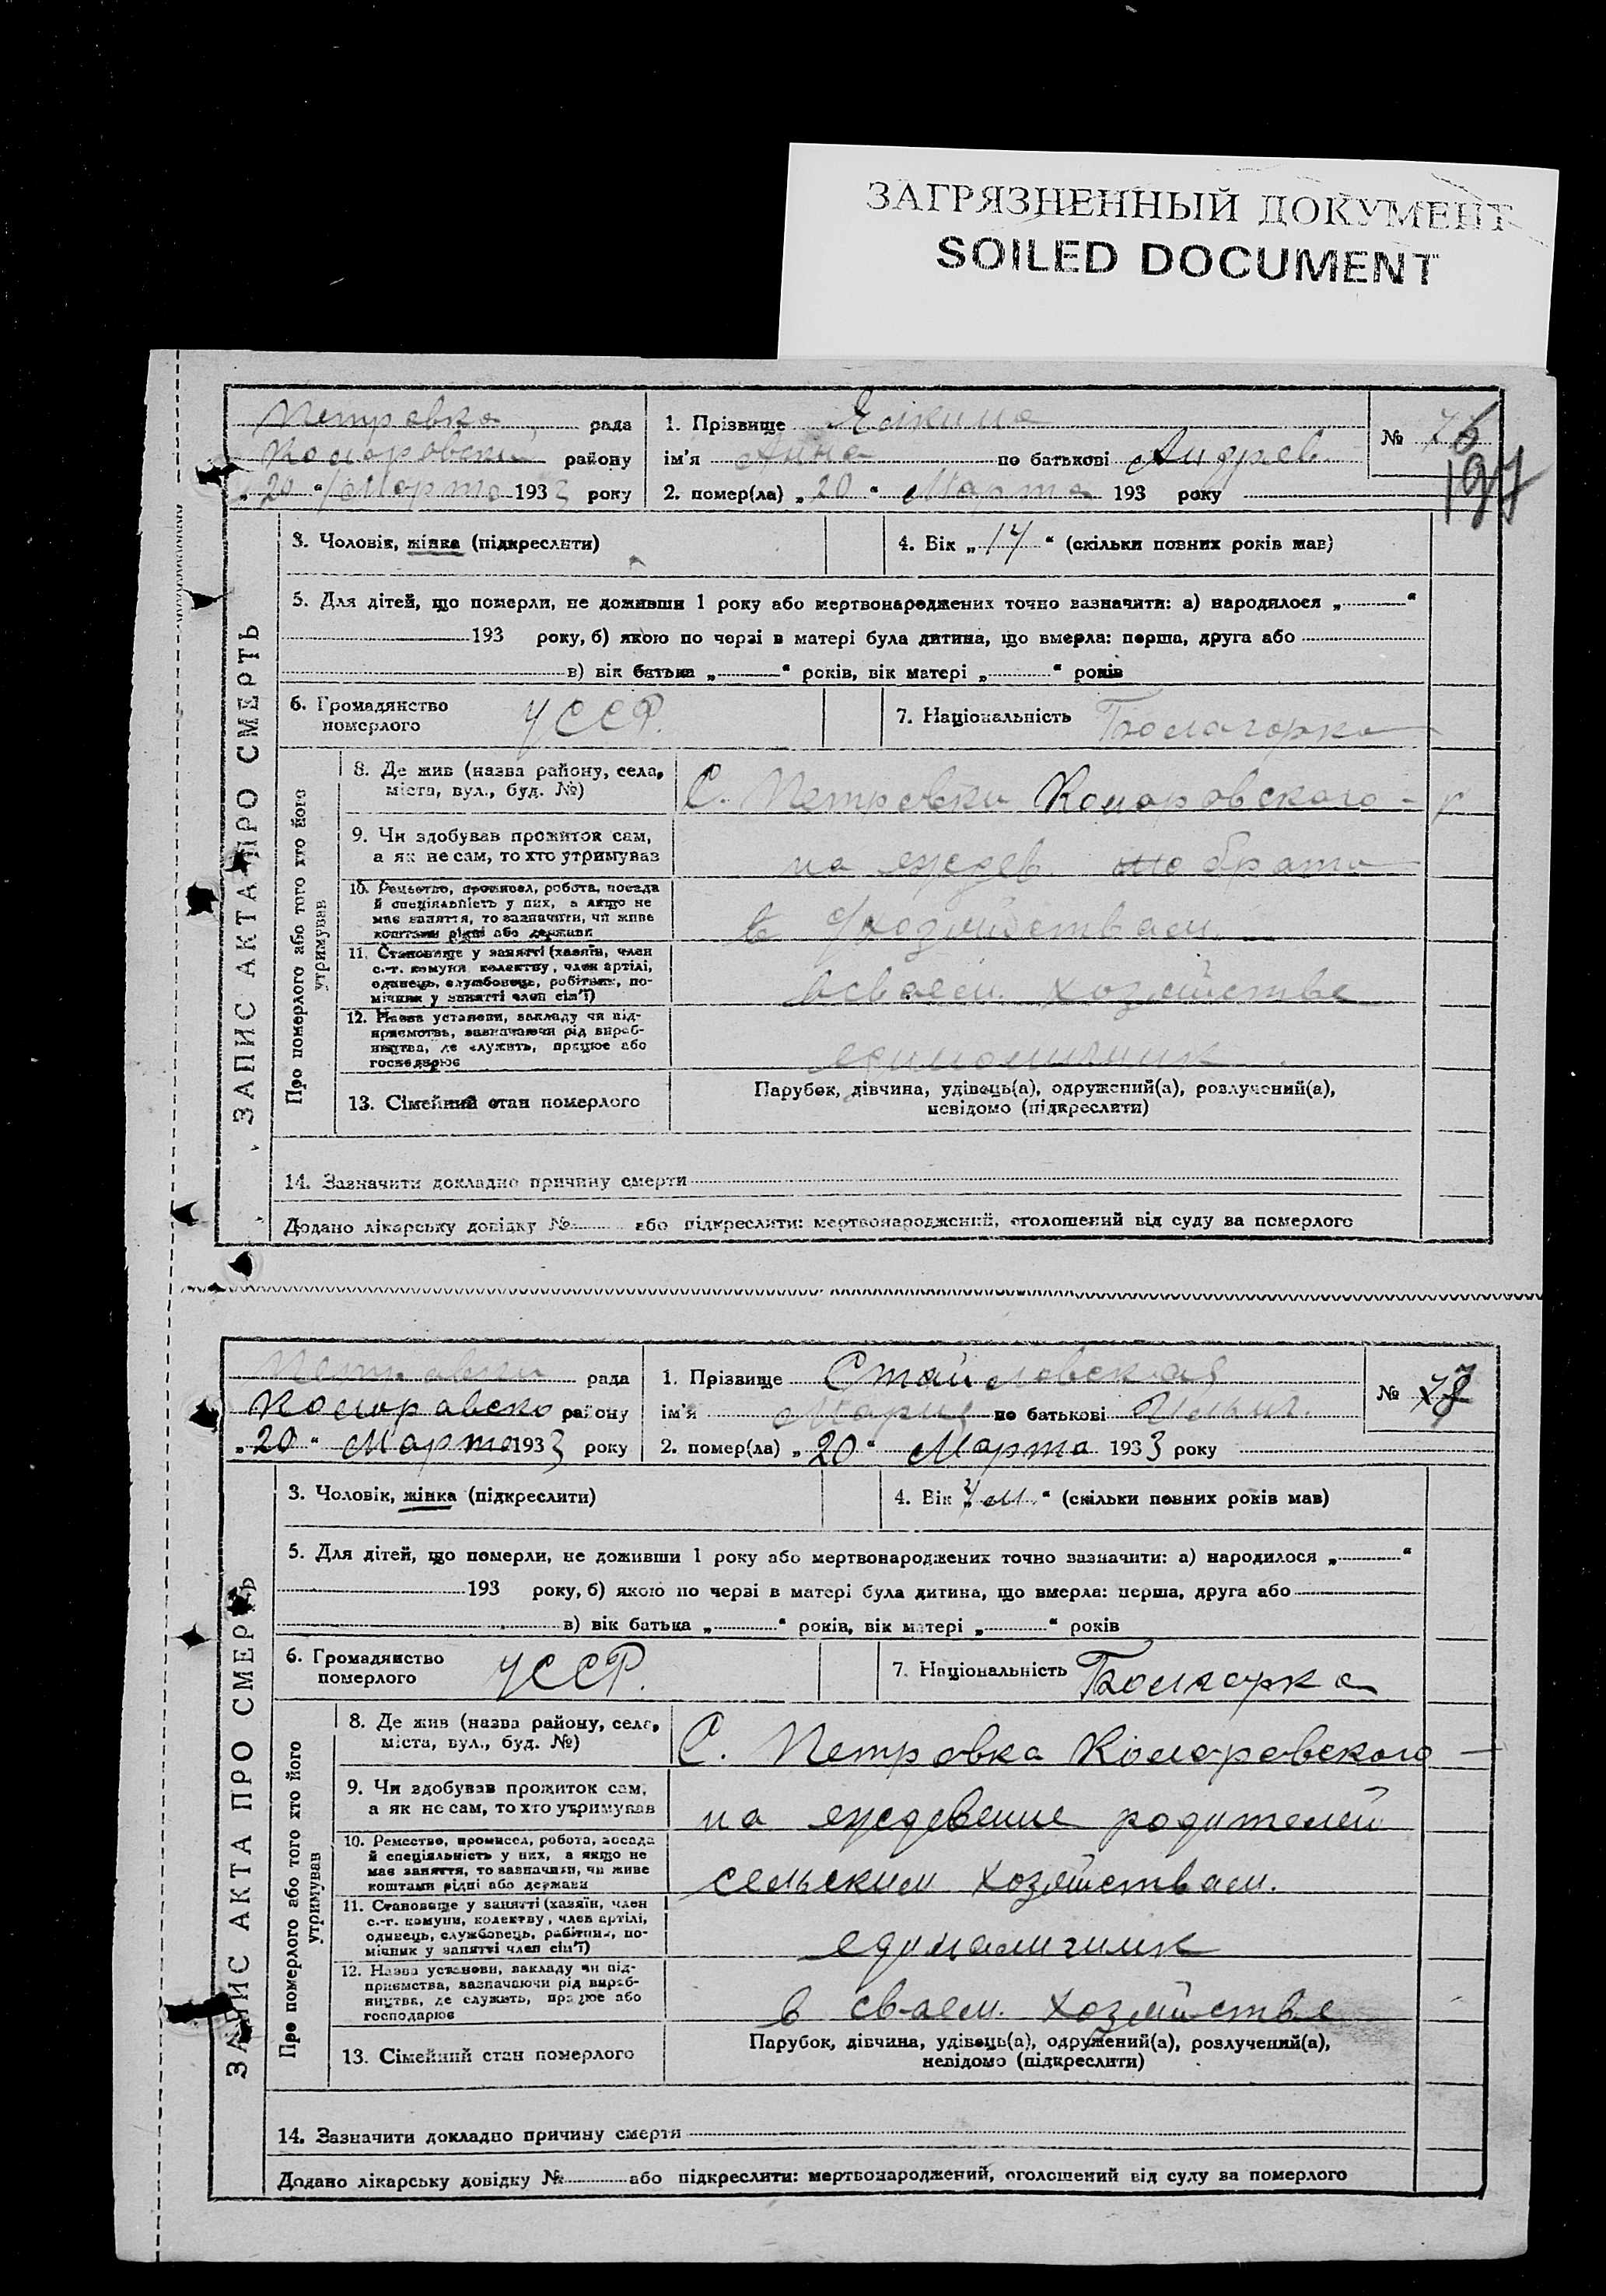 ЗАГРЯЗНЕННЫЙ ДОКУМЕНТ
SOILED DOCUMENT
197
ЗАПИС АКТА ПРО СМЕРТЬ
Петровка рада
района району
„20“ Марта 1933 року
1. Прізвище
ім'я Анна по батькові Андреев
2. помер(ла) „20“ Марта 193 року
№ 76
3. Чоловік, жінка (підкреслити)
4. Вік „14“ (скільки повних років мав)
5. Для дітей, що померли, не доживши 1 року або мертвонароджених точно зазначити: а) народилося „ “
193 року, б) якою по черзі в матері була дитина, що вмерла: перша, друга або
в) вік батька „ “ років, вік матері „ “ років
6. Громадянство
померлого
УССР.
7. Національність Болгарка
Про померлого або того хто його
утримував
8. Де жив (назва району, села,
міста, вул., буд. №)
С. Петровки Коларовского
9. Чи здобував прожиток сам,
а як не сам, то хто утримував
на иждев брата
10. Ремество, промисел, робота, посада
й спеціяльність у них, а якщо не
має заняття, то зазначити, чи живе
коштами рідні або держави
11. Становище у занятті (хазяїн, член
с.-г. комуни, колективу, член артілі,
одинець, службовець, робітник, по-
мічник у занятті член сім'ї)
в своем хозяйстве
12. Назва установи, закладу чи під-
приємства, зазначаючи рід вироб-
ництва, де служить, працює або
господарює
единоличник
13. Сімейний стан померлого
Парубок, дівчина, удівець(а), одружений(а), розлучений(а),
невідомо (підкреслити)
14. Зазначити докладно причину смерти
Додано лікарську довідку № або підкреслити: мертвонароджений, оголошений від суду за померлого
ЗАПИС АКТА ПРО СМЕРТЬ
Петровки рада
Коларовско району
„20“ Марта 1933 року
1. Прізвище
ім'я Мария по батькові
2. помер(ла) „20“ Марта 1933 року
№
3. Чоловік, жінка (підкреслити)
4. Вік „ м.“ (скільки повних років мав)
5. Для дітей, що померли, не доживши 1 року або мертвонароджених точно зазначити: а) народилося „ “
193 року, б) якою по черзі в матері була дитина, що вмерла: перша, друга або
в) вік батька „ “ років, вік матері „ “ років
6. Громадянство
померлого
УССР.
7. Національність Болгарка
Про померлого або того хто його
утримував
8. Де жив (назва району, села,
міста, вул., буд. №)
С. Петровка Коларовского
9. Чи здобував прожиток сам,
а як не сам, то хто утримував
на иждевение родителей
10. Ремество, промисел, робота, посада
й спеціяльність у них, а якщо не
має заняття, то зазначити, чи живе
коштами рідні або держави
сельским хозяйствам.
11. Становище у занятті (хазяїн, член
с.-г. комуни, колективу, член артілі,
одинець, службовець, робітник, по-
мічник у занятті член сім'ї)
единаличник
12. Назва установи, закладу чи під-
приємства, зазначаючи рід вироб-
ництва, де служить, працює або
господарює
в сваем. хозяйстве
13. Сімейний стан померлого
Парубок, дівчина, удівець(а), одружений(а), розлучений(а),
невідомо (підкреслити)
14. Зазначити докладно причину смерти
Додано лікарську довідку № або підкреслити: мертвонароджений, оголошений від суду за померлого